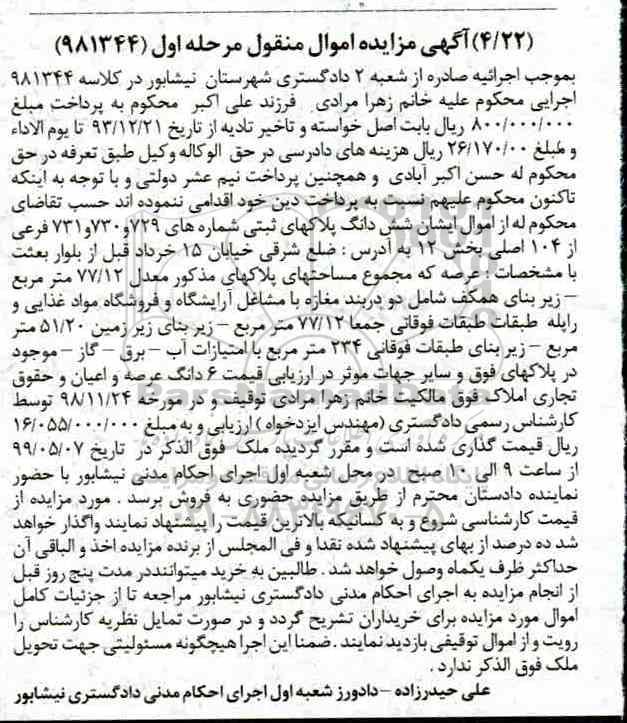 (۴/۲۲) آگهی مزایده اموال منقول مرحله اول (۹۸۱۳۴۴)
بموجب اجرائیه صادره از شعبه ۲ دادگستری شهرستان نیشابور در کلاسه ۹۸۱۳۴۴
اجرایی محکوم علیه خانم زهرا مرادی فرزند علی اکبر محکوم به پرداخت مبلغ
۸۰۰/۰۰۰/۰۰۰ ریال بابت اصل خواسته و تاخیر تادیه از تاریخ ۹۳/۱۲/۲۱ تا یوم الاداء
و مبلغ ۲۶/۱۷۰/۰۰ ریال هزینه های دادرسی در حق الوکاله وکیل طبق تعرفه در حق
محکوم له حسن اکبر آبادی و همچنین پرداخت نیم عشر دولتی و با توجه به اینکه
تاکنون محکوم علیهم نسبت به پرداخت دین خود اقدامی ننموده اند حسب تقاضای
محکوم له از اموال ایشان شش دانگ پلاکهای ثبتی شماره های ۷۲۹و۷۳۰و۷۳۱ فرعی
از ۱۰۴ اصلی بخش ۱۲ به آدرس : ضلع شرقی خیابان ۱۵ خرداد قبل از بلوار بعثت
با مشخصات : عرصه که مجموع مساحتهای پلاکهای مذکور معدل ۷۷/۱۲ متر مربع
– زیر بنای همکف شامل دو دربند مغازه با مشاغل آرایشگاه و فروشگاه مواد غذایی و
راپله طبقات طبقات فوقانی جمعا ۷۷/۱۲ متر مربع – زیر بنای زیر زمین ۵۱/۲۰ متر
مربع – زیر بنای طبقات فوقانی ۲۳۴ متر مربع با امتیازات آب – برق – گاز – موجود
در پلاکهای فوق و سایر جهات موثر در ارزیابی قیمت ۶ دانگ عرصه و اعیان و حقوق
تجاری املاک فوق مالکیت خانم زهرا مرادی توقیف و در مورخه ۹۸/۱۱/۲۴ توسط
کارشناس رسمی دادگستری (مهندس ایزدخواه) ارزیابی و به مبلغ ۱۶/۰۵۵/۰۰۰/۰۰۰
ریال قیمت گذاری شده است و مقرر گردیده ملک فوق الذکر در تاریخ ۹۹/۰۵/۰۷
از ساعت ۹ الی ۱۰ صبح در محل شعبه اول اجرای احکام مدنی نیشابور با حضور
نماینده دادستان محترم از طریق مزایده حضوری به فروش برسد . مورد مزایده از
قیمت کارشناسی شروع و به کسانیکه بالاترین قیمت را پیشنهاد نمایند واگذار خواهد
شد ده درصد از بهای پیشنهاد شده نقدا و فی المجلس از برنده مزایده اخذ و الباقی آن
حداکثر ظرف یکماه وصول خواهد شد . طالبین به خرید میتوانند در مدت پنج روز قبل
از انجام مزایده به اجرای احکام مدنی دادگستری نیشابور مراجعه تا از جزئیات کامل
اموال مورد مزایده برای خریداران تشریح گردد و در صورت تمایل نظریه کارشناس را
رویت و از اموال توقیفی بازدید نمایند . ضمنا این اجرا هیچگونه مسئولیتی جهت تحویل
ملک فوق الذکر ندارد .
علی حیدرزاده – دادورز شعبه اول اجرای احکام مدنی دادگستری نیشابور